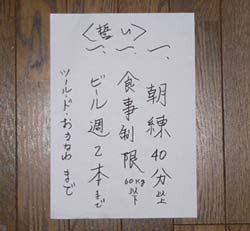 〈誓い〉
一、朝練40分以上
一、食事制限60kg以下
一、ビール週2本まで
ツールド・おきなわまで